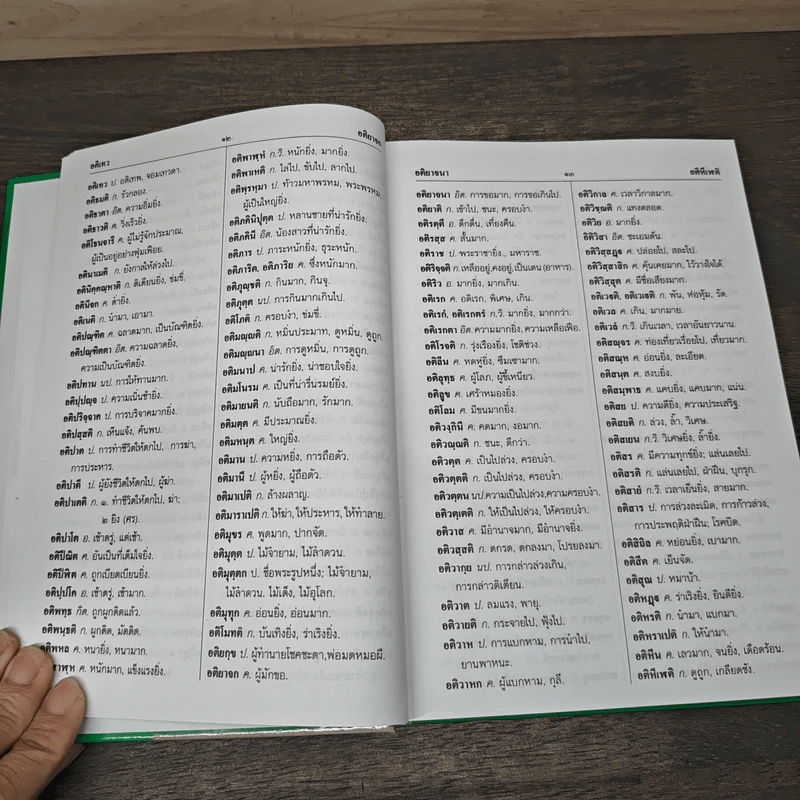 อติเทว
๑๒
อติยาจก
อติเทว ป. อติเทพ, จอมเทวดา.
อติธมติ ก. รัวกลอง.
อติธาตา อิต. ความอิ่มยิ่ง.
อติธาวติ ก. วิ่งเร็วยิ่ง.
อติโธนจารี ค. ผู้ไม่รู้จักประมาณ,
ผู้เป็นอยู่อย่างฟุ่มเฟือย.
อตินาเมติ ก. ยังกาลให้ล่วงไป.
อตินิคฺคณฺหาติ ก. ติเตียนยิ่ง, ข่มขี่.
อตินีจก ค. ต่ำยิ่ง.
อติเนติ ก. นำมา, เอามา.
อติปณฺฑิต ค. ฉลาดมาก, เป็นบัณฑิตยิ่ง.
อติปณฺฑิตตา อิต. ความฉลาดยิ่ง,
ความเป็นบัณฑิตยิ่ง.
อติปทาน นป. การให้ทานมาก.
อติปปญฺจ ป. ความเนิ่นช้ายิ่ง.
อติปริจฺจาค ป. การบริจาคมากยิ่ง.
อติปสฺสติ ก. เห็นแจ้ง, ค้นพบ.
อติปาต ป. การทำชีวิตให้ตกไป, การฆ่า,
การประหาร.
อติปาตี ป. ผู้ยังชีวิตให้ตกไป, ผู้ฆ่า.
อติปาเตติ ก. ๑. ทำชีวิตให้ตกไป, ฆ่า;
๒ ยิง (ศร).
อติปาโต อ. เช้าตรู่, แต่เช้า.
อติปีณิต ค. อันเป็นที่เต็มใจยิ่ง.
อติปีฬิต ค. ถูกเบียดเบียนยิ่ง.
อติปฺปโค อ. เช้าตรู่, เช้ามาก.
อติพทฺธ กิต. ถูกผูกติดแล้ว.
อติพนฺธติ ก. ผูกติด, มัดติด.
อติพหล ค. หนายิ่ง, หนามาก.
อติพาฬฺห ค. หนักมาก, แข็งแรงยิ่ง.
อติพาฬฺหํ ก.วิ. หนักยิ่ง, มากยิ่ง.
อติพาเหติ ก. ไล่ไป, ขับไป, ลากไป.
อติพฺรหฺมา ป. ท้าวมหาพรหม, พระพรหม,
ผู้เป็นใหญ่ยิ่ง.
อติภคินิปุตฺต ป. หลานชายที่น่ารักยิ่ง.
อติภคินี อิต. น้องสาวที่น่ารักยิ่ง.
อติภาร ป. ภาระหนักยิ่ง, ธุระหนัก.
อติภาริต, อติภาริย ค. ซึ่งหนักมาก.
อติภุญฺชติ ก. กินมาก, กินจุ.
อติภุตฺต นป. การกินมากเกินไป.
อติโภติ ก. ครอบงำ, ข่มขี่.
อติมญฺญติ ก. หมิ่นประมาท, ดูหมิ่น, ดูถูก.
อติมญฺญนา อิต. การดูหมิ่น, การดูถูก.
อติมนาป ค. น่ารักยิ่ง, น่าชอบใจยิ่ง.
อติมโนรม ค. เป็นที่น่ารื่นรมย์ยิ่ง.
อติมายนติ ก. นับถือมาก, รักมาก.
อติมตฺต ค. มีประมาณยิ่ง.
อติมหนฺต ค. ใหญ่ยิ่ง.
อติมาน ป. ความหยิ่ง, การถือตัว.
อติมานี ป. ผู้หยิ่ง, ผู้ถือตัว.
อติมาเปติ ก. ล้างผลาญ.
อติมาราเปติ ก. ให้ฆ่า,ให้ประหาร, ให้ทำลาย.
อติมุขร ค. พูดมาก, ปากจัด.
อติมุตฺต ป. ไม้จำยาม, ไม้ลำดวน.
อติมุตฺตก ป. ชื่อพระรูปหนึ่ง; ไม้จำยาม,
ไม้ลำดวน, ไม้เต็ง, ไม้อูโลก.
อติมุทุก ค. อ่อนยิ่ง, อ่อนมาก.
อติโมทติ ก. บันเทิงยิ่ง, ร่าเริงยิ่ง.
อติยกฺข ป. ผู้ทำนายโชคชะตา,พ่อมดหมอผี.
อติยาจก ค. ผู้มักขอ.
อติยาจนา
๑๓
อติหีเพติ
อติยาจนา อิต. การขอมาก, การขอเกินไป.
อติยาติ ก. เข้าไป, ชนะ, ครอบงำ.
อติรตฺติ อ. ดึกดื่น, เที่ยงคืน.
อติรสฺส ค. สั้นมาก.
อติราช ป. พระราชายิ่ง, มหาราช.
อติริจฺจติ ก. เหลืออยู่, คงอยู่, เป็นเดน (อาหาร).
อติริว อ. มากยิ่ง, มากเกิน.
อติเรก ค. อดิเรก, พิเศษ, เกิน.
อติเรกํ, อติเรกตรํ ก.วิ. มากยิ่ง, มากกว่า.
อติเรกตา อิต. ความมากยิ่ง, ความเหลือเฟือ.
อติโรจติ ก. รุ่งเรืองยิ่ง, โชติช่วง.
อติลีน ค. หดหู่ยิ่ง, ซึมเซามาก.
อติลุทฺธ ค. ผู้โลภ, ผู้ขี้เหนียว.
อติลูข ค. เศร้าหมองยิ่ง.
อติโลม ค. มีขนมากยิ่ง.
อติวงฺกินี ค. คดมาก, งอมาก.
อติวณฺณติ ก. ชนะ, ดีกว่า.
อติวตฺต ค. เป็นไปล่วง, ครอบงำ.
อติวตฺตติ ก. เป็นไปล่วง, ครอบงำ.
อติวตฺตน นป.ความเป็นไปล่วง,ความครอบงำ.
อติวตฺเตติ ก. ให้เป็นไปล่วง, ให้ครอบงำ.
อติวส ค. มีอำนาจมาก, มีอำนาจยิ่ง.
อติวสฺสติ ก. ตกรด, ตกลงมา, โปรยลงมา.
อติวากฺย นป. การกล่าวล่วงเกิน,
การกล่าวติเตียน.
อติวาต ป. ลมแรง, พายุ.
อติวายติ ก. กระจายไป, ฟุ้งไป.
อติวาห ป. การแบกหาม, การนำไป,
ยานพาหนะ.
อติวาหก ค. ผู้แบกหาม, กุลี.
อติวิกาล ค. เวลาวิกาลมาก.
อติวิชฺฌติ ก. แทงตลอด.
อติวิย อ. มากยิ่ง.
อติวิสา อิต. ชะเอมต้น.
อติวิสฺสฏฺฐ ค. ปล่อยไป, สละไป.
อติวิสฺสาสิก ค. คุ้นเคยมาก, ไว้วางใจได้.
อติวิสฺสุต ค. มีชื่อเสียงมาก.
อติเวฐติ, อติเวเฐติ ก. พัน, ห่อหุ้ม, รัด.
อติเวล ค. เกิน, มากมาย.
อติเวลํ ก.วิ. เกินเวลา, เวลาอันยาวนาน.
อติสญฺจร ค. ท่องเที่ยวเรื่อยไป, เที่ยวมาก.
อติสณฺห ค. อ่อนยิ่ง, ละเอียด.
อติสนฺต ค. สงบยิ่ง.
อติสมฺพาธ ค. แคบยิ่ง, แคบมาก, แน่น.
อติสย ป. ความดียิ่ง, ความประเสริฐ.
อติสยติ ก. ล่วง, ล้ำ, วิเศษ.
อติสยน ก.วิ. วิเศษยิ่ง, ล้ำยิ่ง.
อติสร ค. มีความทุกข์ยิ่ง; แล่นเลยไป.
อติสรติ ก. แล่นเลยไป, ฝ่าฝืน, บุกรุก.
อติสายํ ก.วิ. เวลาเย็นยิ่ง, สายมาก.
อติสาร ป. การล่วงละเมิด, การก้าวล่วง,
การประพฤติฝ่าฝืน; โรคบิด.
อติสิถิล ค. หย่อนยิ่ง, เบามาก.
อติสีต ค. เย็นจัด.
อติสุณ ป. หมาบ้า.
อติหฏฺฐ ค. ร่าเริงยิ่ง, ยินดียิ่ง.
อติหรติ ก. นำมา, แบกมา.
อติหราเปติ ก. ให้นำมา.
อติหีน ค. เลวมาก, จนยิ่ง, เดือดร้อน.
อติหีเพติ ก. ดูถูก, เกลียดชัง.